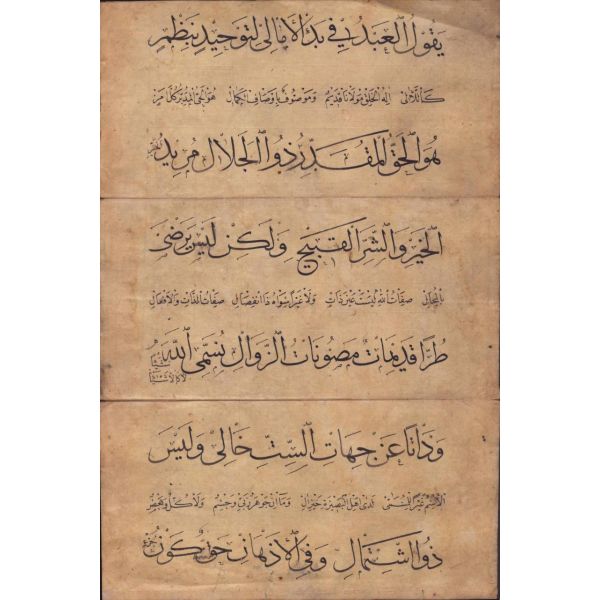 يَقُولُ الْعَبْدُ فِي بَدْءِ الْأَمَالِي لِتَوْحِيدٍ بِنَظْمٍ
كَاللَّآلِي إِلَهُ الْخَلْقِ مَوْلَانَا قَدِيمٌ وَمَوْصُوفٌ بِأَوْصَافِ الْكَمَالِ هُوَ الْحَيُّ الْمُدَبِّرُ كُلَّ أَمْرٍ
هُوَ الْحَقُّ الْمُقَدِّرُ ذُو الْجَلَالِ مُرِيدُ
الْخَيْرِ وَالشَّرِّ الْقَبِيحِ وَلَكِنْ لَيْسَ يَرْضَى
بِالْمُحَالِ صِفَاتُ اللَّهِ لَيْسَتْ عَيْنَ ذَاتٍ وَلَا غَيْرًا سِوَاهُ ذَا انْفِصَالٍ صِفَاتُ الذَّاتِ وَالْأَفْعَالِ
طُرًّا قَدِيمَاتٌ مَصُونَاتُ الزَّوَالِ نُسَمِّي اللَّهَ
وَذَاتًا عَنْ جِهَاتِ السِّتِّ خَالِي وَلَيْسَ
الْاِسْمُ غَيْرًا لِلْمُسَمَّى لَدَى أَهْلِ الْبَصِيرَةِ خَيْرِ آلٍ وَمَا إِنْ جَوْهَرٌ رَبِّي وَجِسْمٌ وَلَا كُلٌّ وَبَعْضٌ
ذُو اشْتِمَالِ وَفِي الْأَذْهَانِ حَقٌّ كَوْنُ